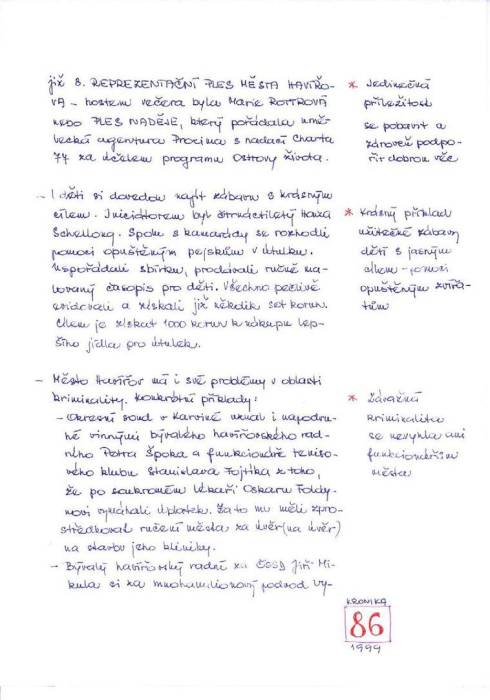 již 8. REPREZENTAČNÍ PLES MĚSTA HAVÍŘO-
VA - hostem večera byla Marie ROTTROVÁ
nebo PLES NADĚJE, který pořádala umě-
lecká agentura Procina s nadací Charta
77 za účelem programu Ostrovy života.
* Jedinečná
příležitost
se pobavit a
zároveň podpo-
řit dobrou věc
- I děti si dovedou najít zábavu s krásným
cílem. Iniciátorem byl čtrnáctiletý
Schellong. Spolu s kamarády se rozhodli
pomoci opuštěným pejskům v útulku.
Uspořádali sbírku, prodávali ručně ma-
lovaný časopis pro děti. Všechno pečlivě
evidovali a získali již několik set korun.
Cílem je získat 1000 korun k nákupu lep-
šího jídla pro útulek.
* Krásný příklad
užitečné zábavy
dětí s jasným
cílem - pomoci
opuštěným zvířá-
tům
- Město Havířov má i své problémy v oblasti
kriminality. Konkrétní příklady:
- Okresní soud v Karviné uznal i napodru-
hé vinnými bývalého havířovského rad-
ního Petra Špoka a funkcionáře teniso-
vého klubu Stanislava Fojtíka z toho,
že po soukromém lékaři Oskaru Foldy-
novi vymáhali úplatek. Za to mu měli zpro-
středkovat ručení města za úvěr (na úvěr)
na stavbu jeho kliniky.
- Bývalý havířovský radní za ČSSD Jiří Mi-
kula si za mnohamilionový podvod vy-
* Závažná
kriminalita
se nevyhla ani
funkcionářům
města
KRONIKA
86
1999